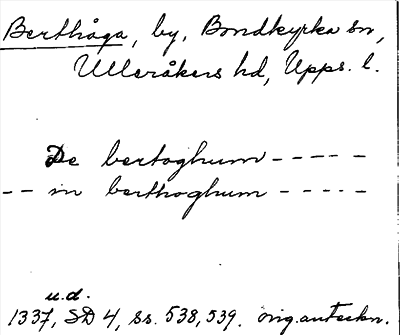 Berthåga, by, Bondkyrka sn,
Ulleråkers hd, Upps. l.
De bertoghum -----
-- in berthoghum -----
u.d.
1337, SD 4, ss. 538, 539. orig.anteckn.